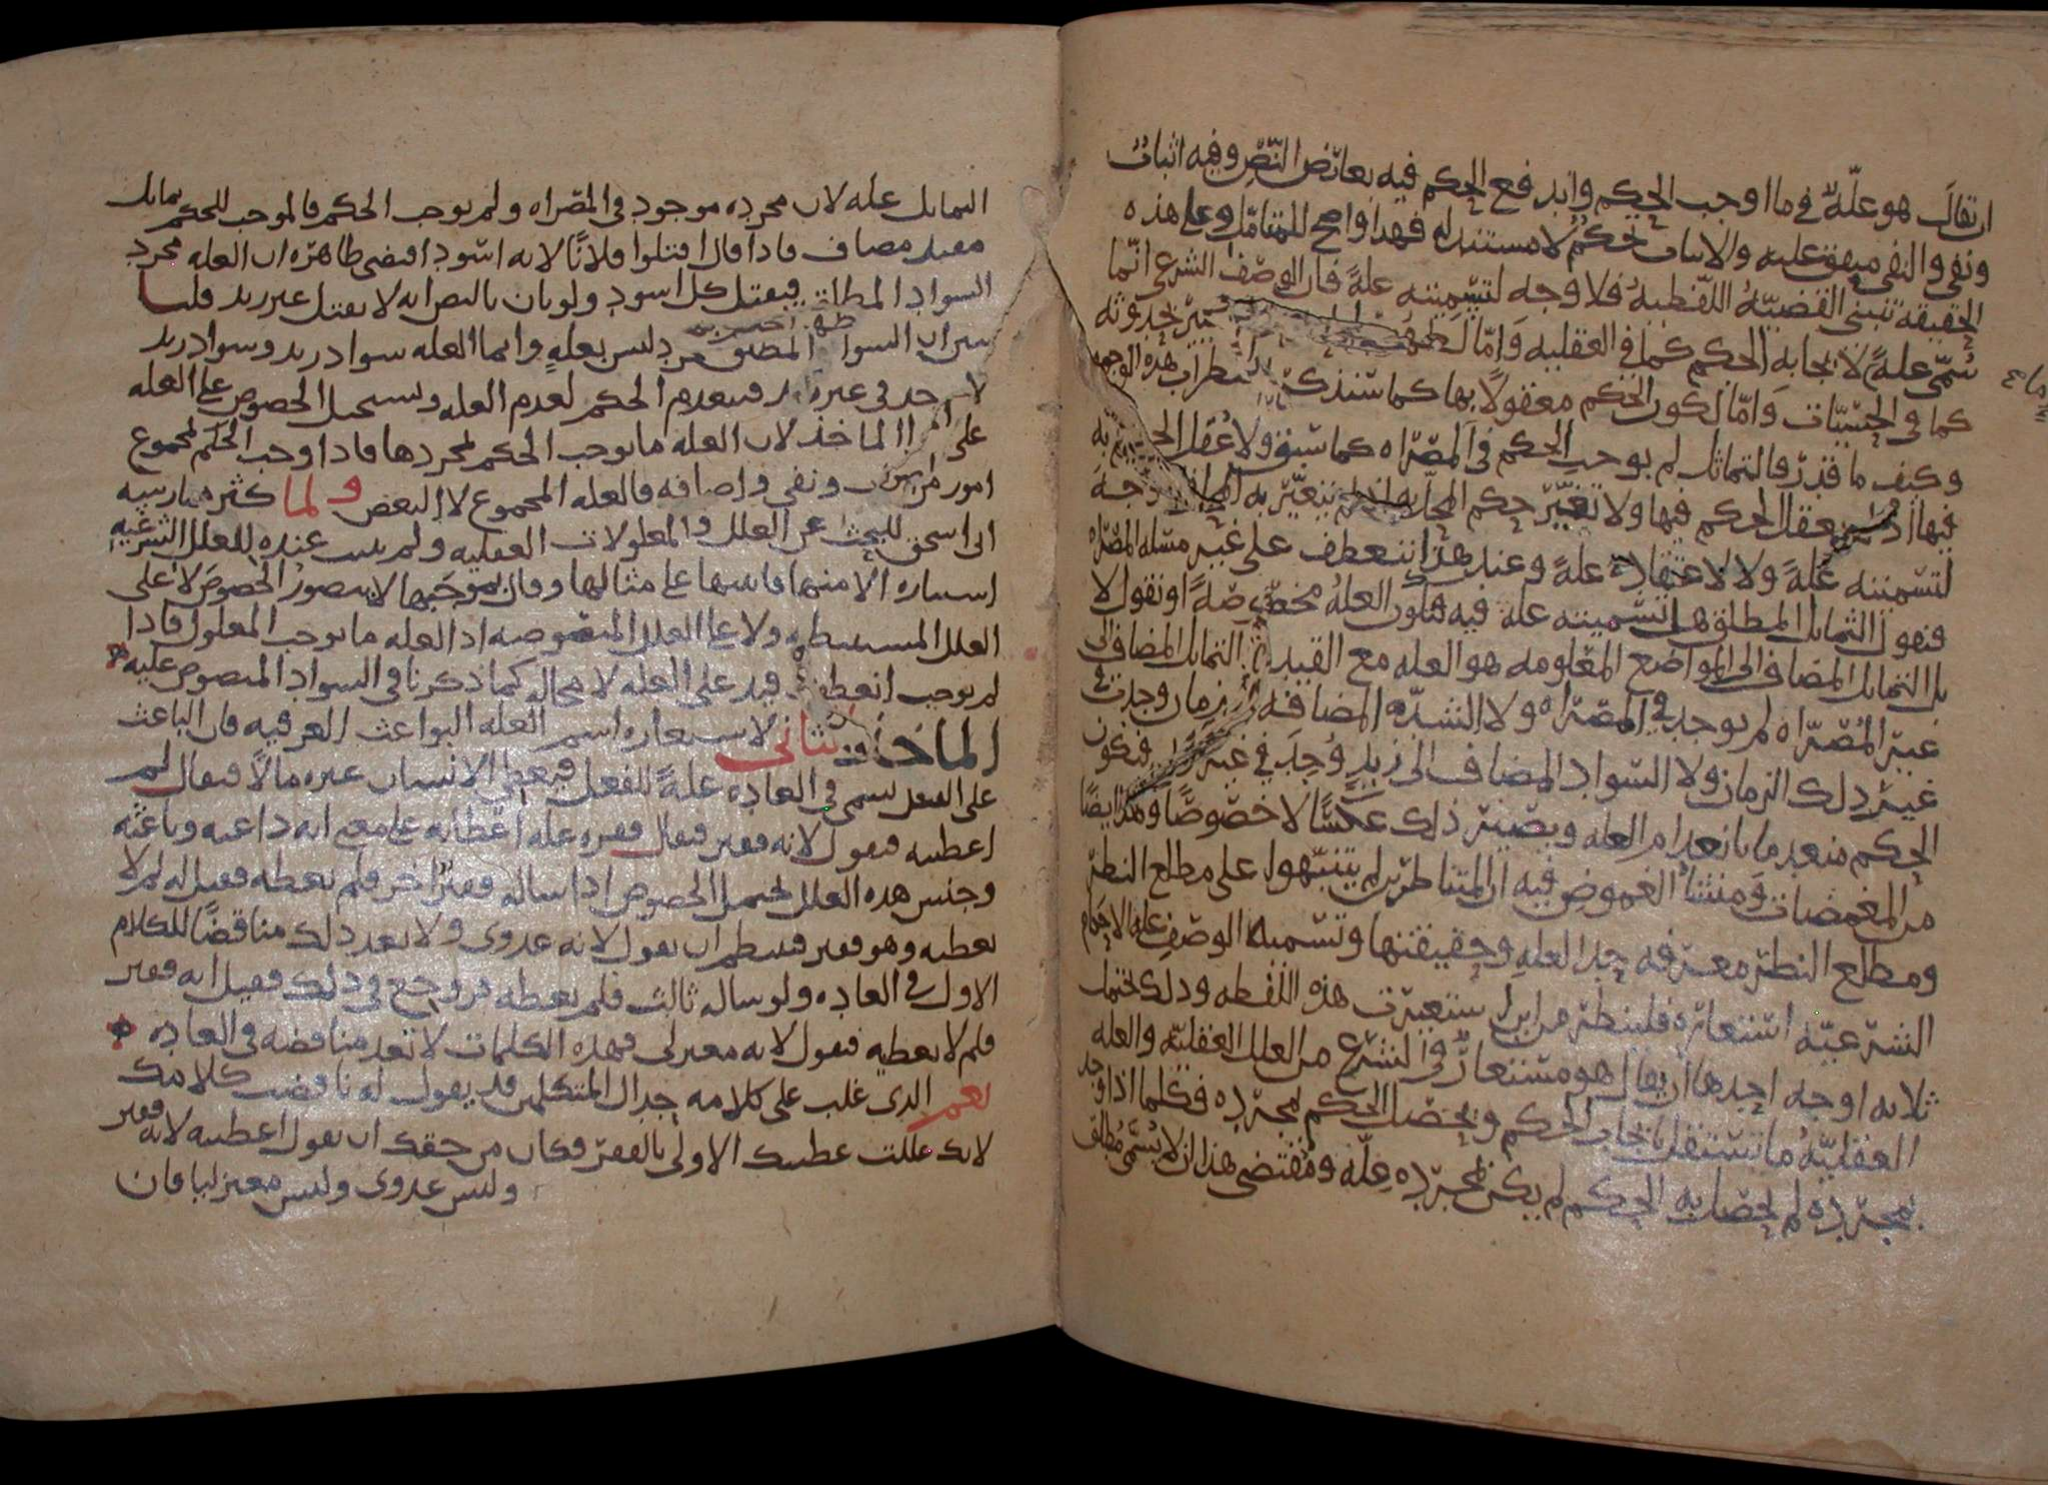 ان يقال هو علّة في ما اوجب الحكم واندفع الحكم فيه بعارض النص وفيه اثبات
ونفي والنفي متفق عليه والاثبات تحكم لا مستند له فهذا واضح للمتامل وعلى هذه
الحقيقة تبتنى القضية اللفظية فلا وجه لتسميته علة فان الوصف الشرعي انما
سُمّى علةً لايجابه الحكم كما في العقليه وامّا
كما في الحسّيّات وامّا لكون الحكم معقولا بها كما سنذكر هذه الوجوه
وكيف ما قدر فالتماثل لم يوجب الحكم في المصراه كما سبق ولا عُقل به
فيها اذ لم يعقل الحكم فيها ولا تغيّر حكم المحل به اذ لم يتغيّر به
لتسميته علةً ولا لاعتقاده علةً وعند هذا ننعطف على غير مسئله المصراه
فنقول التماثل المطلق هل تسميته علة فيه فتكون العلة مخصّصة او نقول لا
بل التماثل المضاف الى المواضع المعلومه هو العله مع القيد التماثل المضاف الى
غير المُصرّاه لم يوجد في المصراه ولا الشدّه المضافه زمان وجدت في
غير ذلك الزمان ولا السواد المضاف الى زيد وُجِدَ في غير فيكون
الحكم منعدما بانعدام العله ويصير ذلك عكسًا لا خصوصًا وهذا ايضًا
من المغمضات ومنشأ الغموض فيه ان المتناظرين لم يتنبّهوا على مطلع النظر
ومطلع النظر معرفه حد العلة وحقيقتها وتسميه الوصف علة الاحكام
الشرعيّه استعاره فلينظر من اين استعيرت هذه اللفظه وذلك يحتمل
ثلاثه اوجه احدها ان يقال هو مستعارٌ في الشرع من العلل العقليّه والعله
العقليّةُ ما تستقل بايجاب الحكم ويحصل الحكم بمجرّده فكلما اذا وجد
بمجرده لم يحصل به الحكم لم يكن بمجرّده علّه ومقتضى هذا ان لا يُسمّى مُطلق
التماثل عله لان مجرده موجود في المصراه ولم يوجب الحكم فالموجب للحكم تماثل
مقيد مضاف فاذا قال اقتلوا فلانًا لانه اسود اقتضى ظاهره ان العله مجرد
السواد المطلق فيقتل كل اسود ولو بان بالنص انه لا يقتل غير زيد قلنا
ان السواد المطلق ليس بعلةٍ وانما العله سواد زيد وسواد زيد
لا يوجد في غيره فينعدم الحكم لعدم العله ويستحيل الخصوص على العله
على الماخذ لان العله ما يوجب الحكم بمجردها فاذا اوجب الحكم لمجموع
امور من ونفي واضافه فالعله المجموع لا البعض ولما كثر ممارسه
ابي اسحق للبحث عن العلل والمعلولات العقليه ولم يثبت عنده للعلل الشرعيه
استعاره الا منها قاسها على مثالها وقال بموجبها لا يتصور الخصوص لا على
العلل المستنبطه ولا على العلل المنصوصه اذ العله ما يوجب المعلول فاذا
لم يوجب انعطف قيد على العله لا محاله كما ذكرنا في السواد المنصوص عليه
الماخذ الثاني لاستعاره اسم العله البواعث العرفيه فان الباعث
على الفعل يسمى في العاده علةً للفعل فيعطى الانسان غيره مالًا فيقال لم
اعطيته فيقول لانه فقير فيقال فقره علة اعطائه على معنى انه داعيه وباعثه
وجنس هذه العلل يحتمل الخصوص اذا ساله فقيرٌ اخر فلم يعطه فقيل له لم لا
تعطيه وهو فقير فينتظم ان يقول لانه عدوي ولا يعد ذلك مناقضًا للكلام
الاول في العاده ولو ساله ثالث فلم يعطه فروجع في ذلك فقيل انه فقير
فلم لا تعطيه فيقول لانه معتزلي فهذه الكلمات لا تعد مناقضه في العاده
نعم الذي غلب على كلامه جدال المتكلمين قد يقول له ناقضت كلامك
لانك عللت عطيتك الاولى بالفقر وكان من حقك ان تقول اعطيته لانه فقير
وليس عدوي وليس معتزليا فان